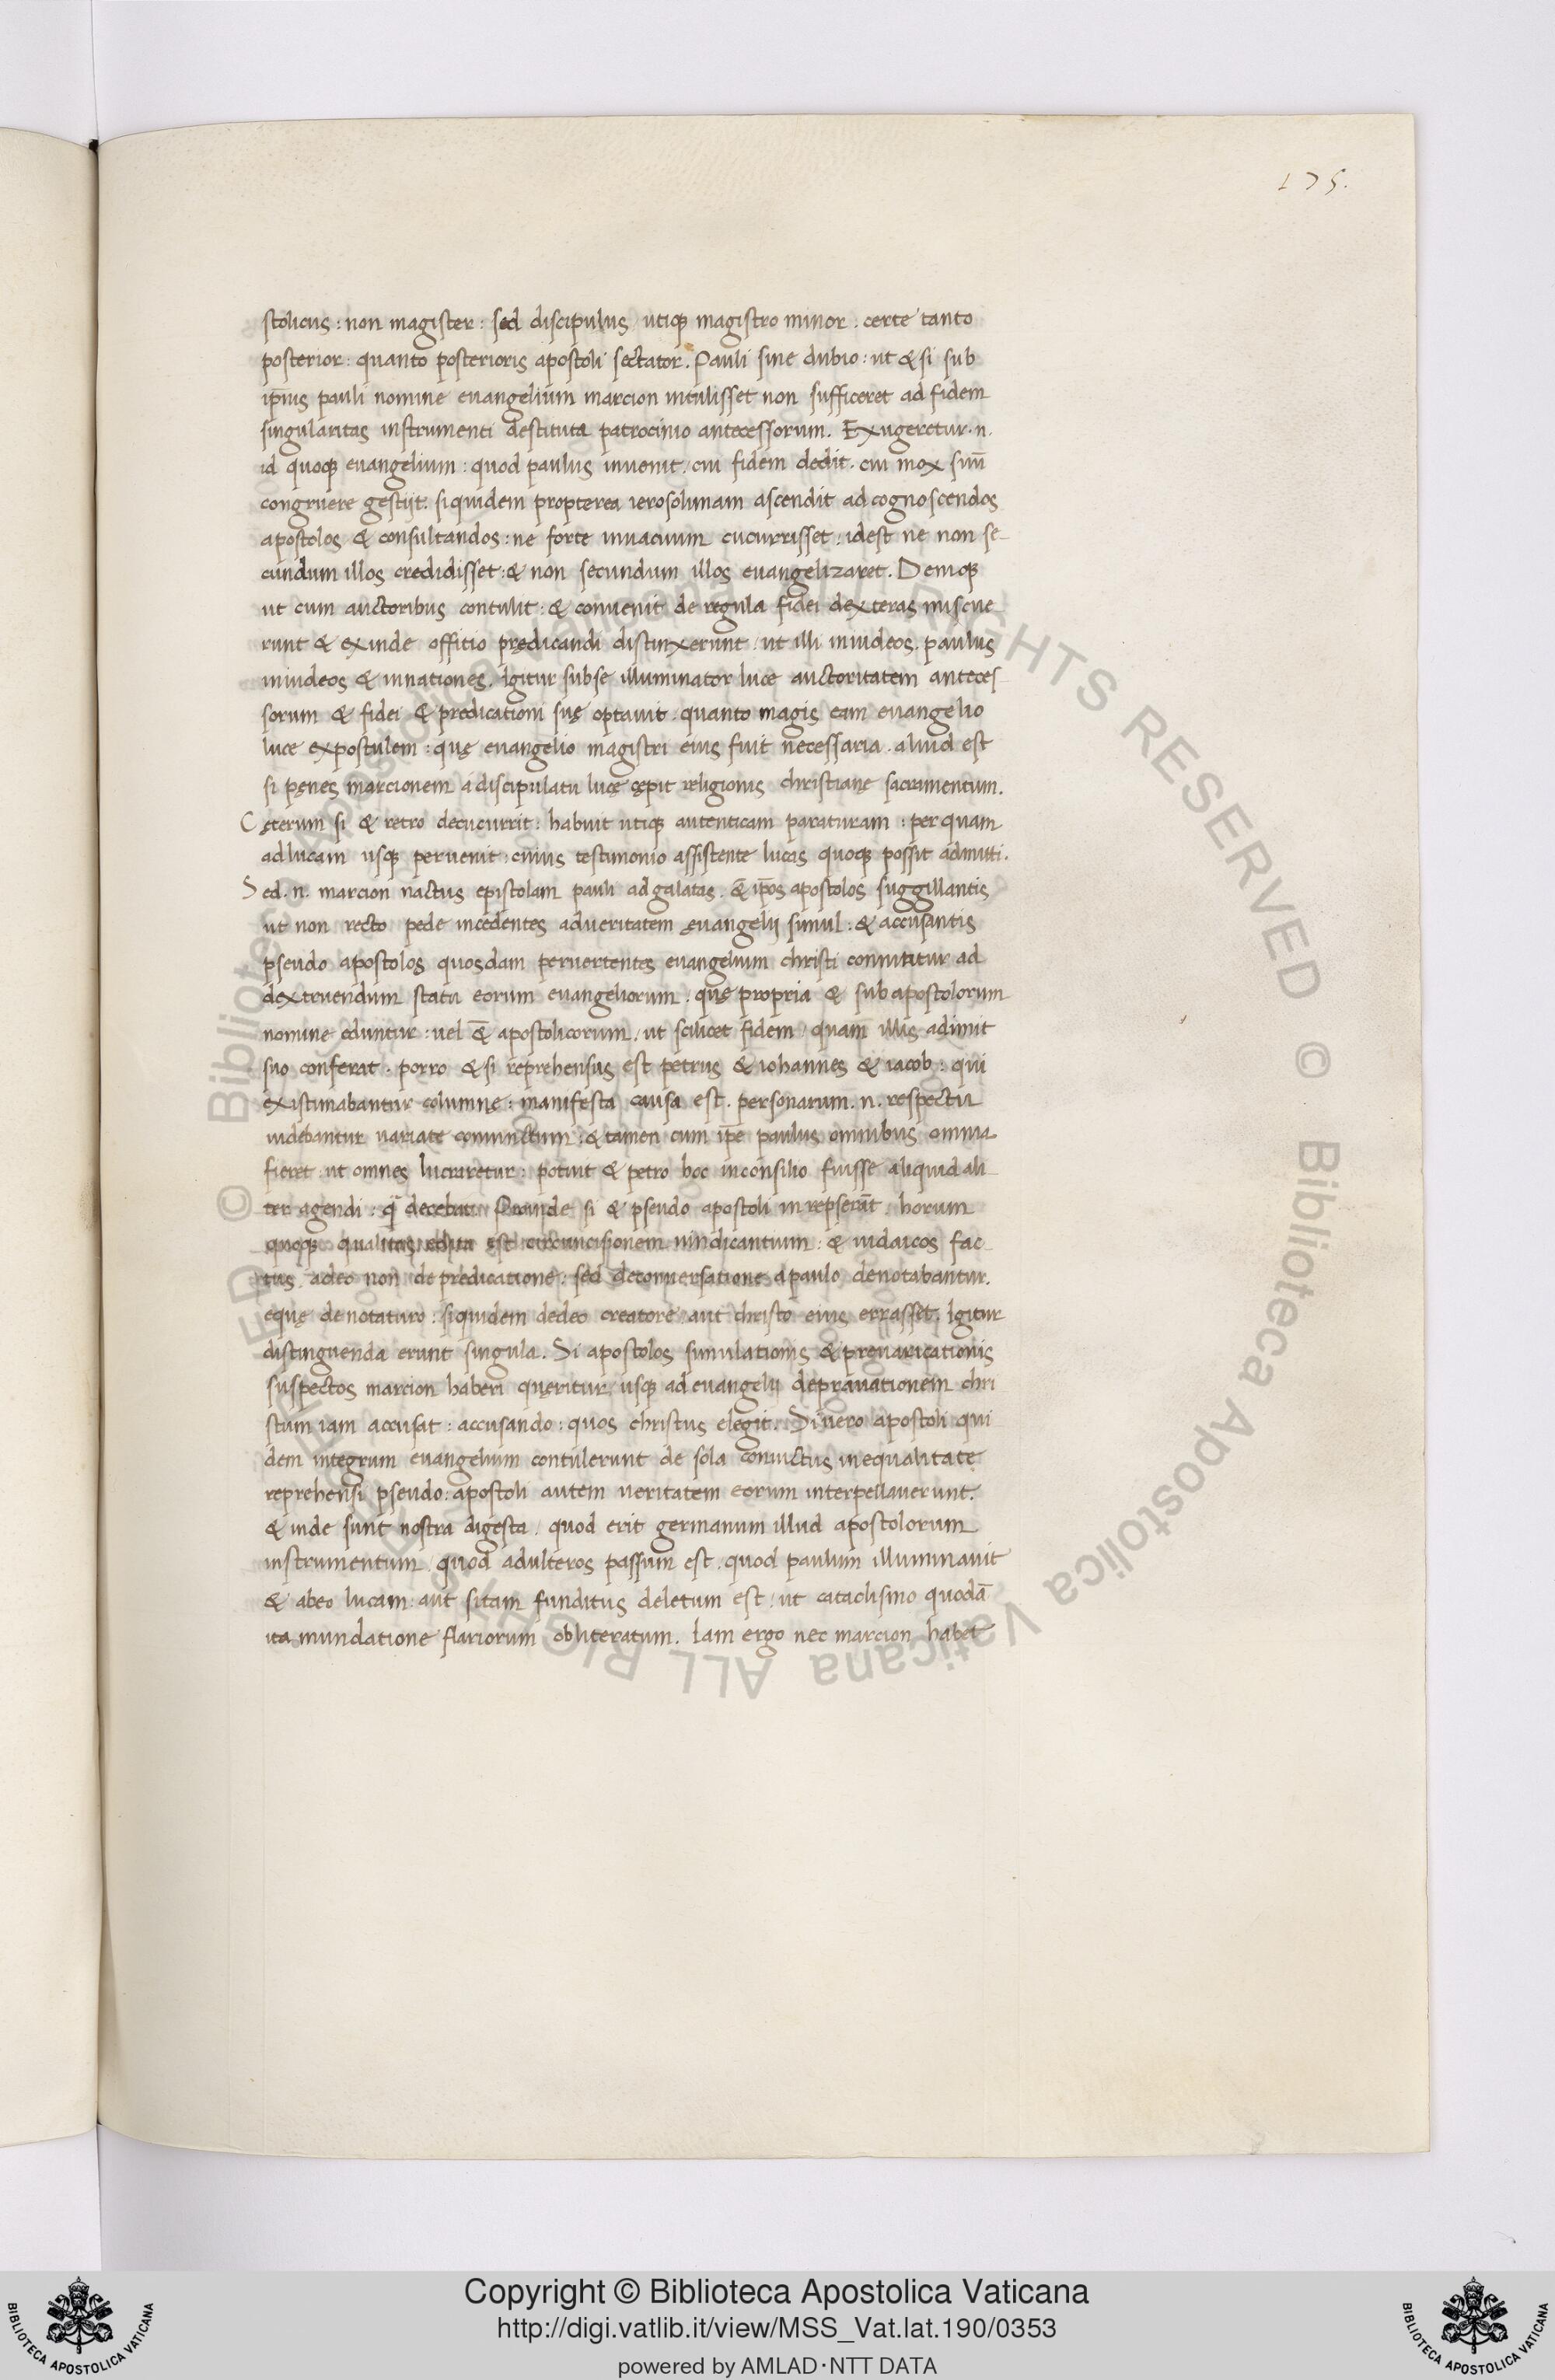 175.
stolicus : non magister : sed discipulus / utiqꝫ magistro minor . certe tanto
posterior : quanto posterioris apostoli sectator . Pauli sine dubio : ut & si sub
ip̄ius pauli nomine euangelium marcion intulisset non sufficeret ad fidem
singularitas instrumenti destituta patrocinio antecessorum . Exugeretur . n .
id quoqꝫ euangelium : quod paulus inuenit / cui fidem dedit . cui mox suū
congruere gestijt . siquidem propterea ierosolimam ascendit ad cognoscendos
apostolos & consultandos : ne forte inuacuum cucurrisset : idest ne non se-
cundum illos credidisset : & non secundum illos euangelizaret . Deniqꝫ
ut cum auctoribus contulit : & conuenit de regula fidei dexteras miscue
runt & exinde offitio prędicandi distinxerunt / ut illi iniudeos . paulus
iniudeos & innationes . Igitur subse illuminator luce auctoritatem anteces
sorum & fidei & predicationi suę optauit . quanto magis eam euangelio
luce expostulem : quę euangelio magistri eius fuit necessaria . aliud est
si pęnes marcionem a discipulatu lucę cępit religionis christianę sacramentum .
Cęterum si & retro decucurrit : habuit utiqꝫ autenticam paraturam : per quam
ad lucam usqꝫ peruenit : cuius testimonio assistente lucas quoqꝫ possit admitti .
Sed . n . marcion nactus epistolam pauli ad galatas . & ip̄os apostolos suggillantis
ut non recto pede incedentes adueritatem euangelij simul : & accusantis
pseudo apostolos quosdam peruertentes euangelium christi connititur ad
dextruendum statū eorum euangeliorum . quę propria & sub apostolorum
nomine eduntur : uel & apostolicorum / ut scilicet fidem / quam illis adimit
suo conferat . porro & si reprehensus est petrus & iohannes & iacob : qui
existimabantur columnę : manifesta causa est . personarum . n . respectu
uidebantur uariare conuictum : & tamen cum ip̄e paulus omnibus omnia
fieret : ut omnes lucraretur : potuit & petro hoc inconsilio fuisse aliquid ali
ter agendi : q̄ decebat Proinde si & pseudo apostoli inrepserāt : horum
quoqꝫ qualitas edita est circuncisionem uindicantium : & iudaicos fac
tus . adeo non de prędicatione : sed deconuersatione apaulo denotabantur .
equę denotaturo : siquidem dedeo creatore / aut christo eius errasset . Igitur
distinguenda erunt singula . Si apostolos simulationis & preuaricationis
suspectos marcion haberi quęritur / usqꝫ ad euangelij deprauationem chri
stum iam accusat : accusando : quos christus elegit . Si uero apostoli qui
dem integrum euangelium contulerunt de sola conuictus inequalitate
reprehensi pseudo : apostoli autem ueritatem eorum interpellauerunt .
& inde sunt nostra digesta . quod erit germanum illud apostolorum
instrumentum . quod adulteros passum est . quod paulum illuminauit
& abeo lucam : aut sitam funditus deletum est / ut cataclismo quodā
ita inundatione flariorum obliteratum . Iam ergo nec marcion habet
© Biblioteca Apostolica Vaticana ALL RIGHTS RESERVED
Copyright © Biblioteca Apostolica Vaticana
http://digi.vatlib.it/view/MSS_Vat.lat.190/0353
powered by AMLAD·NTT DATA
BIBLIOTECA APOSTOLICA VATICANA
BIBLIOTECA APOSTOLICA VATICANA